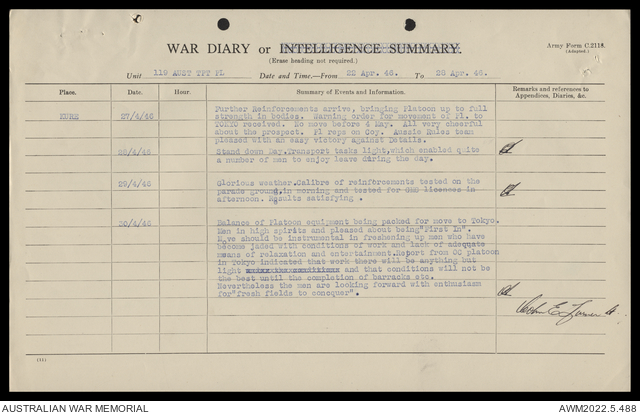 WAR DIARY or INTELLIGENCE SUMMARY.
Army Form C.2118.
(Adapted.)
(Erase heading not required.)
Unit 119 AUST TPT PL Date and Time.—From 22 Apr. 46. To 28 Apr. 46.
Place. Date. Hour. Summary of Events and Information. Remarks and references to Appendices, Diaries, &c.
KURE 27/4/46 Further Reinforcements arrive, bringing Platoon up to full
strength in bodies. Warning order for movement of Pl. to
TOKYO received. No move before 4 May. All very cheerful
about the prospect. Pl reps on Coy. Aussie Rules team
pleased with an easy victory against Details.
28/4/46 Stand down Day.Transport tasks light,which enabled quite
a number of men to enjoy leave during the day.
29/4/46 Glorious weather.Calibre of reinforcements tested on the
parade ground,in morning and tested for licences in
afternoon. Results satisfying .
30/4/46 Balance of Platoon equipment being packed for move to Tokyo.
Men in high spirits and pleased about being"First In".
Move should be instrumental in freshening up men who have
become jaded with conditions of work and lack of adequate
means of relaxation and entertainment.Report from OC platoon
in Tokyo indicated that work there will be anything but
light and that conditions will not be
the best until the completion of barracks etc.
Nevertheless the men are looking forward with enthusiasm
for"fresh fields to conquer".
AUSTRALIAN WAR MEMORIAL
AWM2022.5.488